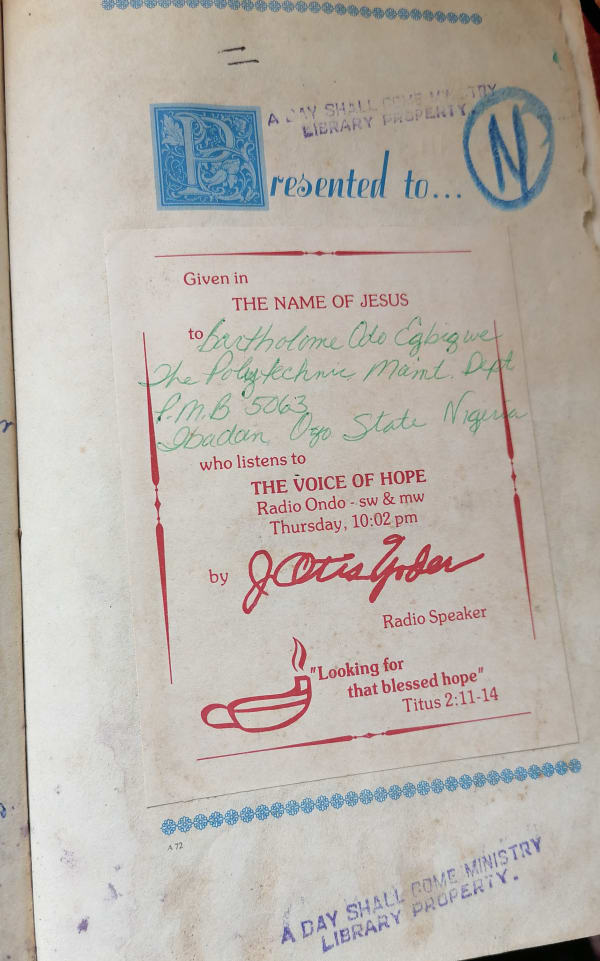 A DAY SHALL COME MINISTRY
LIBRARY PROPERTY.
N
Presented to...
Given in
THE NAME OF JESUS
to Bartholome Odo Egbigwe
The Polytechnic Maint. Dept
P.M.B 5063
Ibadan, Oyo State Nigeria
who listens to
THE VOICE OF HOPE
Radio Ondo - sw & mw
Thursday, 10:02 pm
by J Otis Yoder
Radio Speaker
"Looking for
that blessed hope"
Titus 2:11-14
A 72
A DAY SHALL COME MINISTRY
LIBRARY PROPERTY.